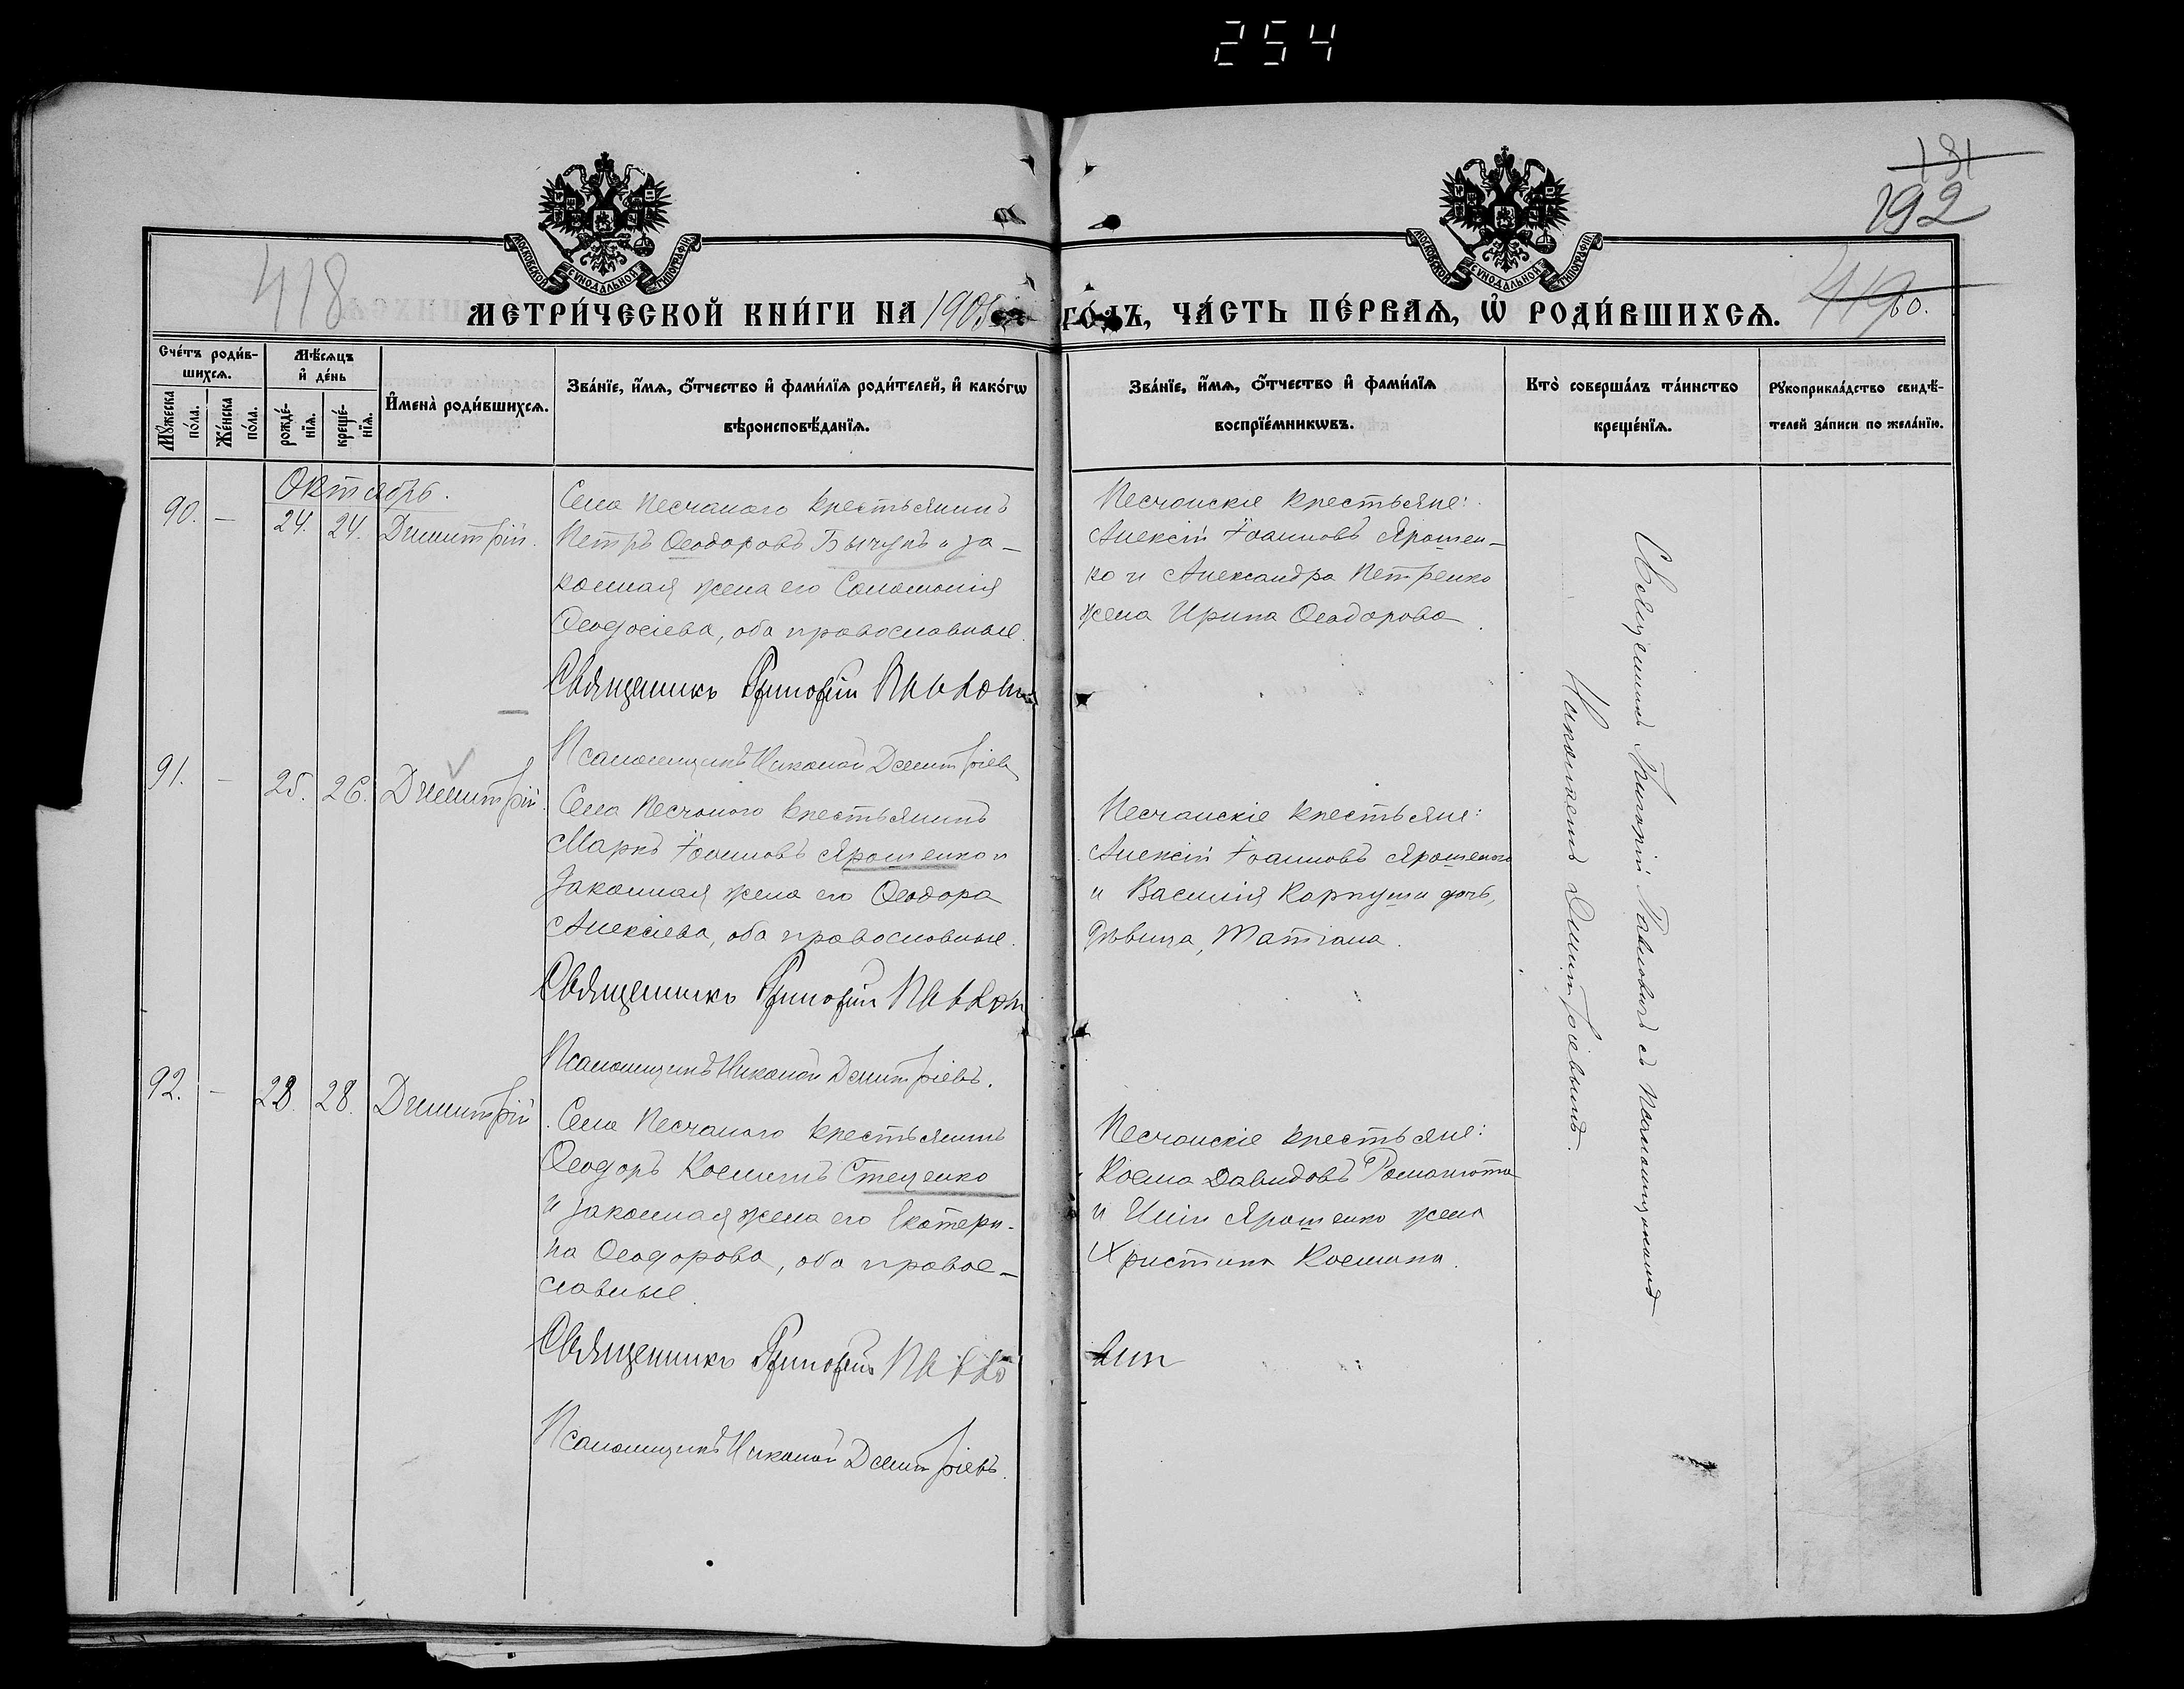 254
131
192
418
419
60.
МОСКОВСКОЙ СѴНОДАЛЬНОЙ ТИПОГРАФІИ
МОСКОВСКОЙ СѴНОДАЛЬНОЙ ТИПОГРАФІИ
МЕТРИ́ЧЕСКОЙ КНИ́ГИ НА 1905 ГО́ДЪ, ЧА́СТЬ ПЕ́РВАѦ, Ѽ РОДИ́ВШИХСѦ.
Сче́тъ роди́в-
шихсѧ.
Мꙋ́жеска
по́ла.
Же́нска
по́ла.
Мѣ́сѧцъ
и҆ де́нь
рожде́-
нїѧ.
креще́-
нїѧ.
И҆мена̀ роди́вшихсѧ.
Зва́нїе, и҆́мѧ, ѻ҆́тчество и҆ фами́лїѧ роди́телей, и҆ како́гѡ
вѣроисповѣ́данїѧ.
Зва́нїе, и҆́мѧ, ѻ҆́тчество и҆ фами́лїѧ
воспрїе́мникѡвъ.
Кто̀ соверша́лъ та́инство
креще́нїѧ.
Рꙋкоприкла́дство свидѣ́-
телей за́писи по жела́нїю.
Октябрь.
90. — 24. 24. Димитрій.
Села Песчанаго крестьянинъ
Петръ Ѳеодоровъ Бычукъ и за-
конная жена его Соломонія
Ѳеодосіева, оба православные.
Священникъ Григорій Павлович
Псаломщикъ Николай Димитріевъ
Песчанскіе крестьяне:
Алексій Іоанновъ Ярошен-
ко и Александра Петренко
жена Ирина Ѳеодорова.
91. — 25. 26. Димитрій.
Села Песчаного крестьянинъ
Маркъ Іоанновъ Ярошенко и
законная жена его Ѳеодора
Алексіева, оба православные.
Священникъ Григорій Павлович
Псаломщикъ Николай Димитріевъ.
Песчанскіе крестьяне:
Алексій Іоанновъ Ярошенко
и Василія Карпуши дочь,
дѣвица, Татіана.
92. — 28. 28. Димитрій
Села Песчанаго крестьянинъ
Ѳеодоръ Косминъ Стеценко
и законная жена его Екатери-
на Ѳеодорова, оба правос-
лавные.
Священникъ Григорій Павло
вич
Псаломщикъ Николай Димитріевъ.
Песчанскіе крестьяне:
Косма Давидовъ Романюта
и Иліи Ярошенко жена
Христина Космина.
Священникъ Григорій Павловичъ съ псаломщикомъ
Николаемъ Димитріевымъ.